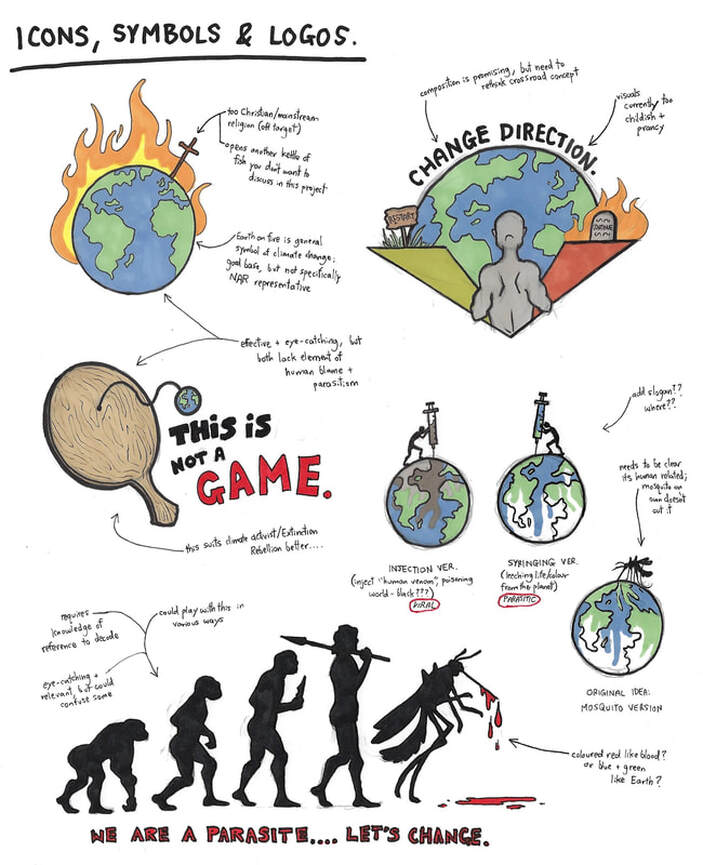 ICONS, SYMBOLS & LOGOS.
too Christian/mainstream
religion (off target)
opens another kettle of
fish you don't want to
discuss in this project
Earth on fire is general
symbol of climate change;
good base, but not specifically
NAR representative
composition is promising, but need to
rethink crossroad concept
visuals
currently too
childish +
prancy
CHANGE DIRECTION.
RESTART
CONTINUE
effective + eye-catching, but
both lack element of
human blame +
parasitism
THIS IS
NOT A
GAME.
this suits climate activist/Extinction
Rebellion better....
add slogan??
where??
needs to be clear
its human related;
mosquito on
own doesn't
cut it
INJECTION VER.
(inject "human venom", poisoning
world - black???)
VIRAL
SYRINGING VER.
(leeching life/colour
from the planet)
PARASITIC
ORIGINAL IDEA:
MOSQUITO VERSION
requires
knowledge of
reference to decode
could play with this in
various ways
eye-catching +
relevant, but could
confuse some
coloured red like blood?
or blue + green
like Earth?
WE ARE A PARASITE.... LET'S CHANGE.